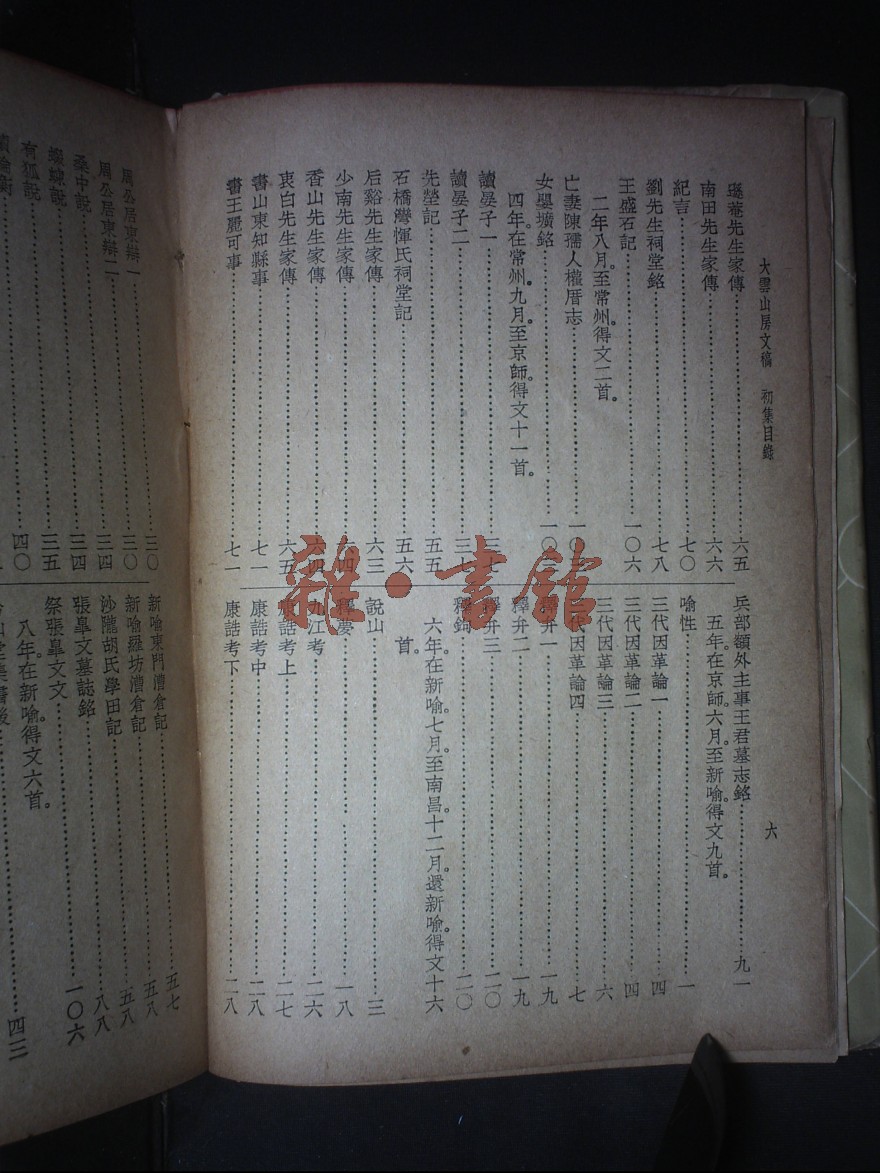 大雲山房文稿　初集目錄
六
遜菴先生家傳……六五
南田先生家傳……六六
紀言……七〇
劉先生祠堂銘……七八
王盛石記……一〇六
二年八月。至常州。得文二首。
亡妻陳孺人權厝志……一〇
女嬰壙銘……一〇
四年。在常州。九月。至京師。得文十一首。
讀晏子一……三七
讀晏子二……三
先塋記……五五
石橋灣惲氏祠堂記……五六
后谿先生家傳……六三
少南先生家傳……六四
香山先生家傳……六四
衷白先生家傳……六五
書山東知縣事……七一
書王麗可事……七一
兵部額外主事王君墓志銘……九一
五年。在京師。六月。至新喻。得文九首。
喻性……一
三代因革論一……四
三代因革論二……四
三代因革論三……六
三代因革論四……七
釋弁一……一九
釋弁二……一九
釋弁三……二〇
釋鉤……二〇
六年。在新喻。七月。至南昌。十二月。還新喻。得文十六
首。
說山……三
釋夢……一八
九江考……二六
康誥考上……二七
康誥考中……二八
康誥考下……二八
周公居東辯一……三〇
周公居東辯二……三四
桑中說……三四
蝃蝀說……三五
有狐說……四〇
讀論衡
新喻東門漕倉記……五七
新喻羅坊漕倉記……五八
沙隴胡氏學田記……五八
張臯文墓誌銘……八八
祭張臯文文……一〇六
八年。在新喻。得文六首。
堂集書後……四三
雜·書館